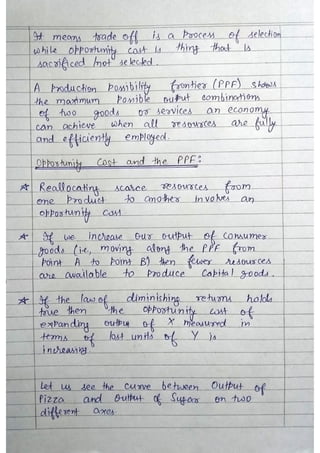 It means trade off is a process of selection
while opportunity cost is thing that is
sacrificed /not selected.
A Production Possibility frontier (PPF) shows
the maximum Possible output combinations
of two goods or services an economy
can achieve when all resources are fully
and efficiently employed.
Opportunity Cost and the PPF:
☆ Reallocating scarce resources from
one Product to another involves an
opportunity cost.
☆ If we increase our output of consumer
goods (i.e., moving along the PPF from
Point A to Point B) then fewer resources
are available to Produce Capital goods.
☆ If the law of diminishing returns holds
true then the opportunity cost of
expanding output of X measured in
terms of lost units of Y is
increasing.
Let us see the curve between Output of
Pizza and Output of Sugar on two
different axes.